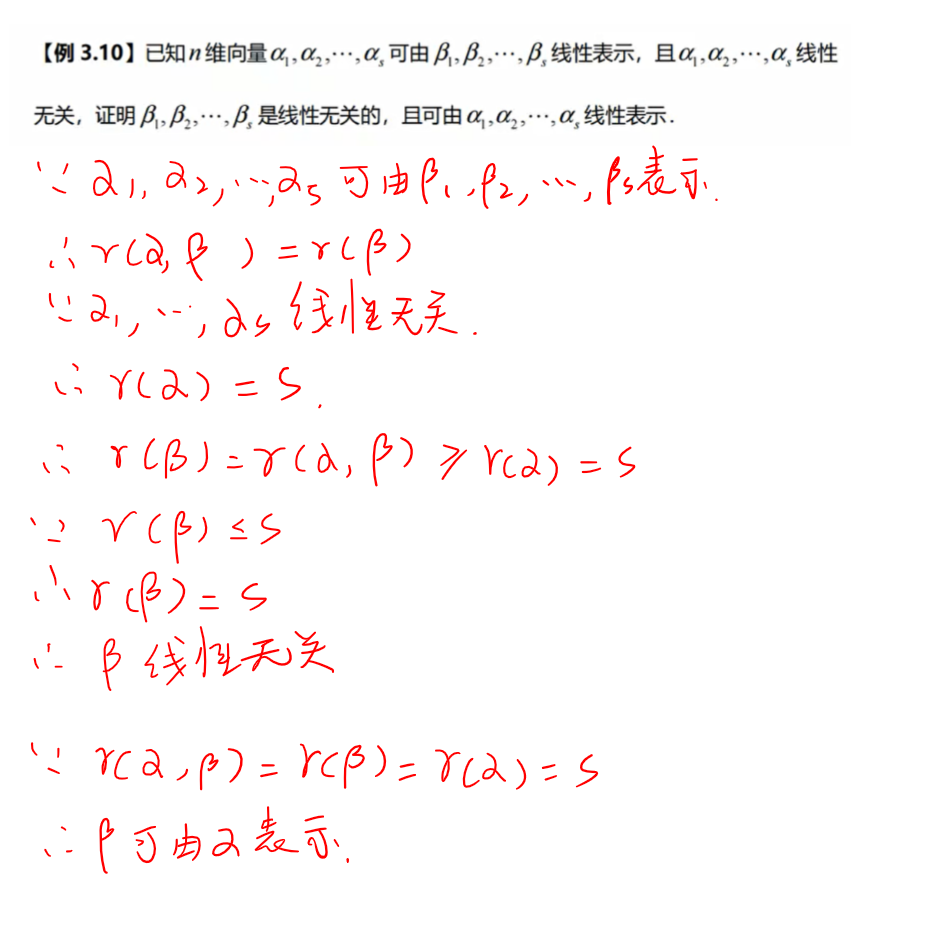 【例 3.10】已知n维向量α₁,α₂,⋯,αₛ可由β₁,β₂,⋯,βₛ线性表示，且α₁,α₂,⋯,αₛ线性
无关，证明β₁,β₂,⋯,βₛ是线性无关的，且可由α₁,α₂,⋯,αₛ线性表示.
∵ α₁, α₂, ⋯, αₛ 可由 β₁, β₂, ⋯, βₛ 表示.
∴ r(α, β) = r(β)
∵ α₁, ⋯, αₛ 线性无关.
∴ r(α) = s.
∴ r(β) = r(α, β) ≥ r(α) = s
∵ r(β) ≤ s
∴ r(β) = s
∴ β 线性无关
∵ r(α, β) = r(β) = r(α) = s
∴ β 可由 α 表示.